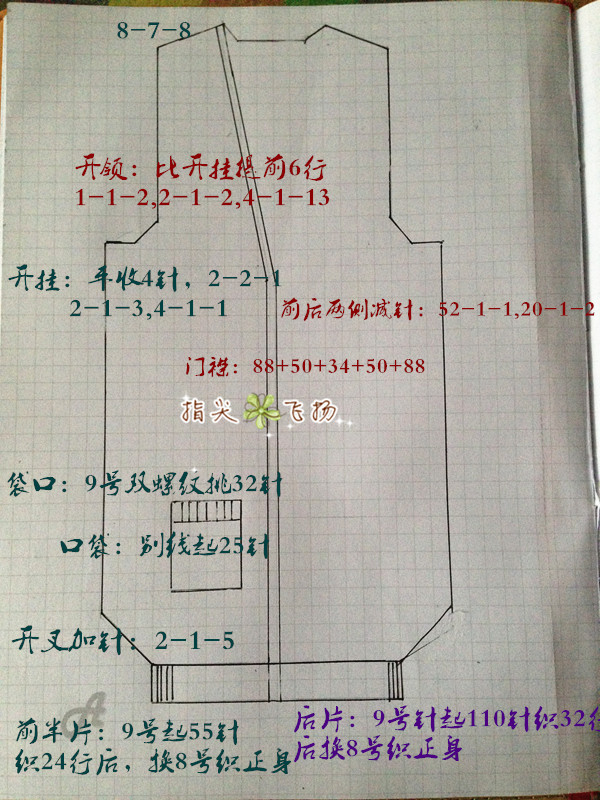 8-7-8
开领：比开挂提前6行
1-1-2,2-1-2,4-1-13
开挂：平收4针，2-2-1
2-1-3,4-1-1
前后两侧减针：52-1-1,20-1-2
门襟：88+50+34+50+88
指尖 飞扬
袋口：9号双螺纹挑32针
口袋：别线起25针
开叉加针：2-1-5
前半片：9号起55针
织24行后，换8号织正身
后片：9号针起110针织32行
后换8号织正身